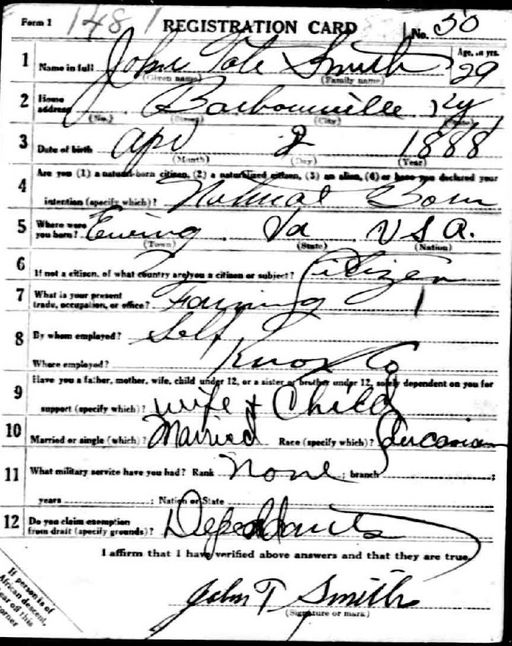 Form 1 1481 REGISTRATION CARD No. 50
1 Name in full John Tate Smith Age, in yrs. 29
(Given name) (Family name)
2 Home address Barbourville Ky
(No.) (Street) (City) (State)
3 Date of birth Apr 2 1888
(Month) (Day) (Year)
Are you (1) a natural-born citizen, (2) a naturalized citizen, (3) an alien, (4) or have you declared your
4 intention (specify which)? Natural Born
5 Where were you born? Ewing Va U S A.
(Town) (State) (Nation)
6 If not a citizen, of what country are you a citizen or subject? Citizen
7 What is your present trade, occupation, or office? Farming 1
8 By whom employed? Self
Where employed? Knox Co
9 Have you a father, mother, wife, child under 12, or a sister or brother under 12, solely dependent on you for
support (specify which)? wife + Child
10 Married or single (which)? Married Race (specify which)? Caucasian
11 What military service have you had? Rank None ; branch ;
years ; Nation or State
12 Do you claim exemption from draft (specify grounds)? Dependants
I affirm that I have verified above answers and that they are true.
John T Smith
(Signature or mark)
If person is of
African descent,
tear off this
corner